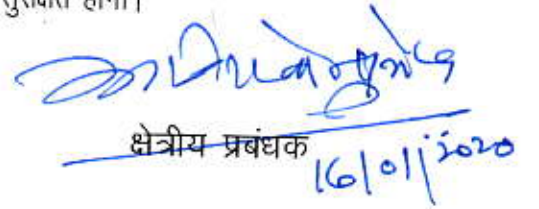 सुरक्षित होगा।
क्षेत्रीय प्रबंधक
16/01/2020